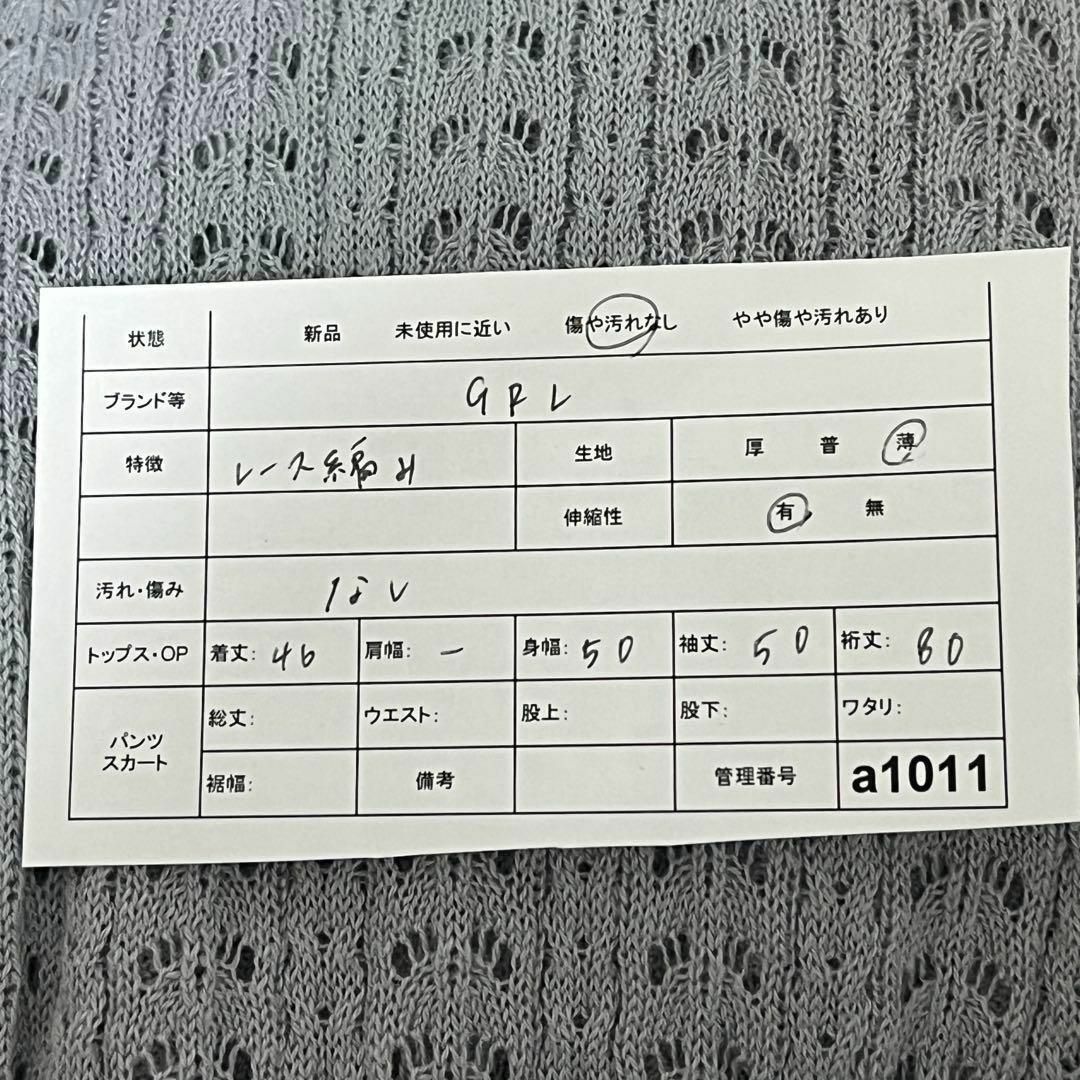 状態 新品 未使用に近い 傷や汚れなし やや傷や汚れあり
ブランド等 GRL
特徴 レース編み 生地 厚 普 薄
伸縮性 有 無
汚れ・傷み なし
トップス・OP 着丈: 46 肩幅: ー 身幅: 50 袖丈: 50 裄丈: 80
パンツ スカート 総丈: ウエスト: 股上: 股下: ワタリ:
裾幅: 備考 管理番号 a1011